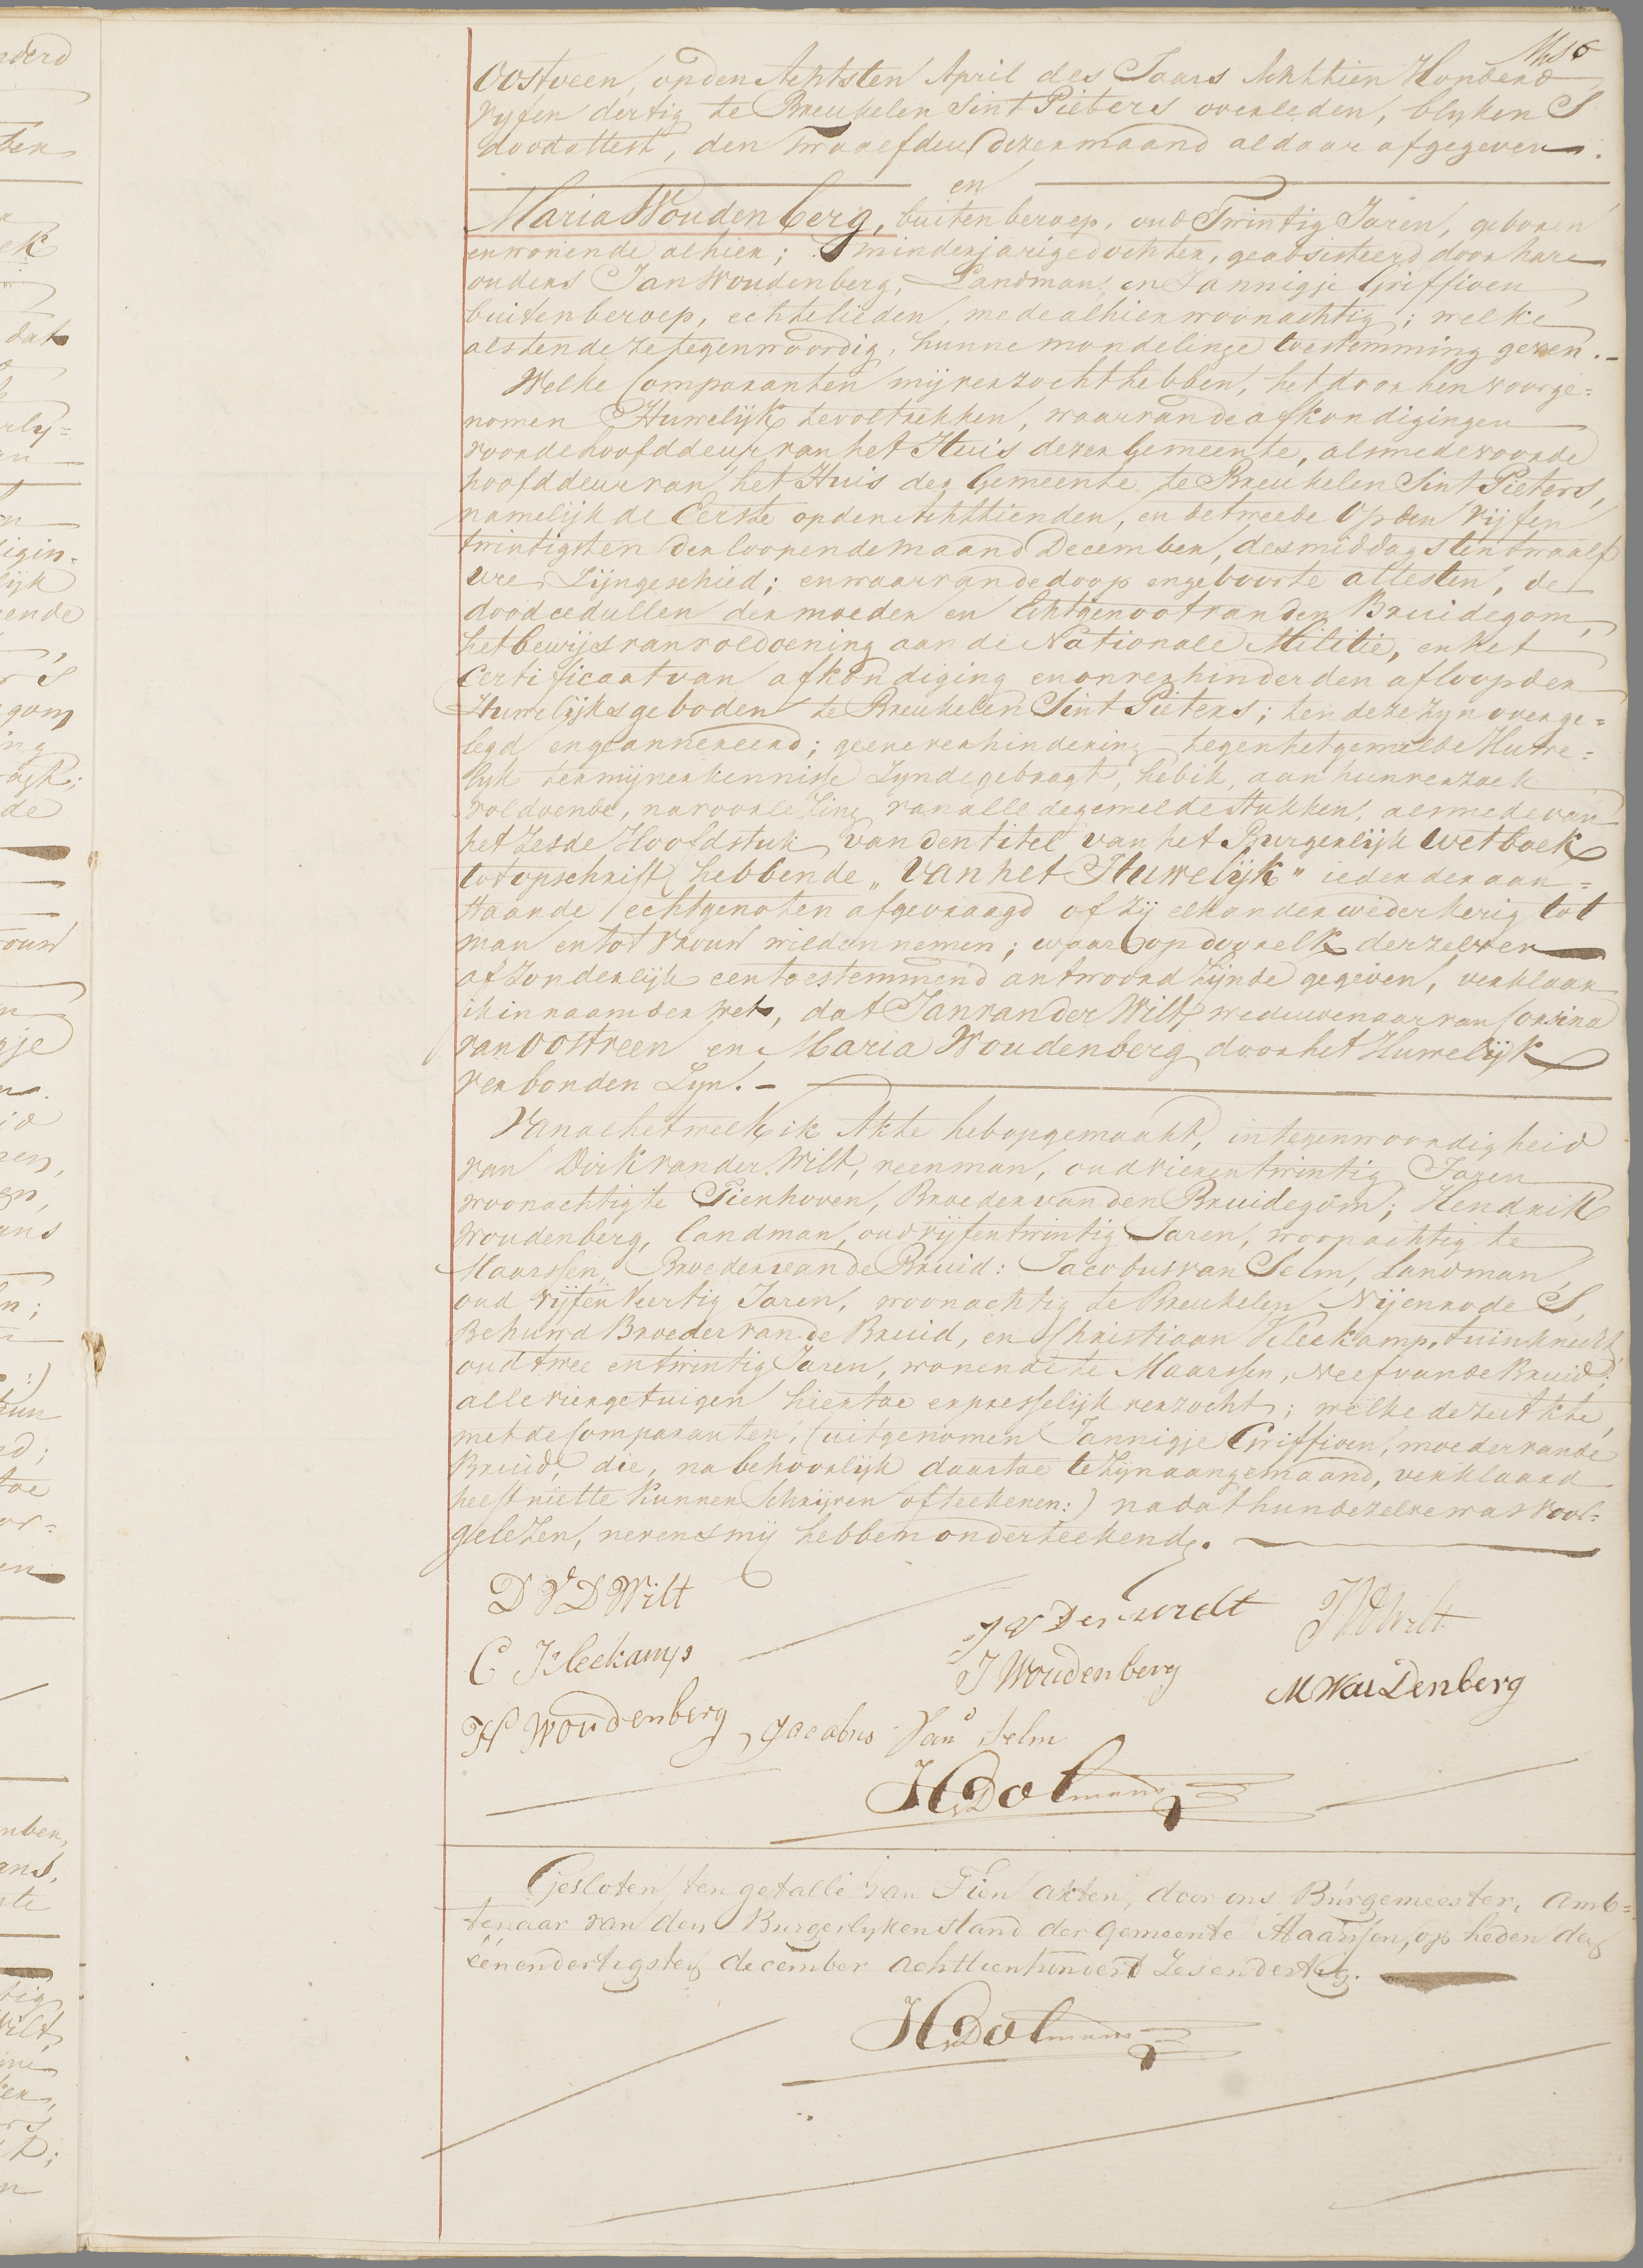 Oostveen, op den Achtsten April des Jaars Achttien Honderd
vyfen dertig te Breukelen Sint Pieters overleden, blykens
doodattest, den Twaalfden dezer maand aldaar afgegeven.
en
Maria Woudenberg, buiten beroep, oud Twintig Jaren, geboren
en wonende alhier; minderjarige dochter, geadsisteerd door hare
ouders Jan Woudenberg, Landman, en Jannigje Griffioen
buiten beroep, echtelieden, mede alhier woonachtig; welke
als ten deze tegenwoordig, hunne mondelinge toestemming geven.-
Welke Comparanten mij verzocht hebben, het door hen voorge=
nomen Huwelijk te voltrekken, waarvan de afkondigingen
voor de hoofddeur van het Huis dezer Gemeente, alsmede voor de
hoofddeur van het Huis der Gemeente te Breukelen Sint Pieters,
namelijk de Eerste op den Achttienden, en de tweede Op den Vijfen
twintigsten der loopende maand December, des middags ten twaalf
ure Zijn geschied; en waarvan de doop en geboorte attesten, de
dood cedullen der moeder en Echtgenoot van den Bruidegom,
het bewijs van voldoening aan de Nationale Militie, en het
Certificaat van afkondiging en onverhinderden afloop der
Huwelijksgeboden te Breukelen Sint Pieters; ten deze zyn overge=
legd en geannexeerd; geene verhindering tegen het gemelde Huwe=
lyk ter mijner kennisse Zynde gebragt, heb ik, aan hun verzoek
voldoende, na voorlezing van alle de gemelde stukken, alsmede van
het Zesde Hoofdstuk van den titel van het Burgerlijk Wetboek
tot opschrift hebbende „Van het Huwelijk" ieder der aan=
staande echtgenoten afgevraagd of zij elkander wederkerig tot
man en tot Vrouw wilden nemen; waarop door elk derzelver
afzonderlijk een toestemmend antwoord Zijnde gegeven, verklaar
ik in naam der Wet, dat Jan van der Wilt, weduwenaar van Corsina
van Oostveen en Maria Woudenberg door het Huwelijk
verbonden Zyn.-
Van al hetwelk ik Akte heb opgemaakt, in tegenwoordigheid
van Dirk van der Wilt, veenman, oud vierentwintig Jaren
woonachtig te Tienhoven, Broeder van den Bruidegom; Hendrik
Woudenberg, Landman, oud vijfentwintig Jaren, woonachtig te
Maarssen, Broeder van de Bruid: Jacobus van Selm, Landman,
oud Vijfen Veertig Jaren, woonachtig te Breukelen Nijenrode S,
Behuwd Broeder van de Bruid, en Christiaan Kleekamp, tuinknecht,
oud twee en twintig Jaren, wonende te Maarssen, Neef van de Bruid;
alle vier getuigen hiertoe expresselijk verzocht; welke deze Akte,
met de Comparanten, (uitgenomen Jannigje Griffioen, moeder van de
Bruid, die, na behoorlijk daartoe te Zijn aangemaand, verklaard
heeft niet te kunnen Schrijven of teekenen:) nadat hun dezelve was voor=
gelezen, nevens mij hebben onderteekend.
D V D Wilt
J V Der wildt
J V D Wilt
C Kleekamp
J Woudenberg
M Woudenberg
H Woudenberg
Jacobus Van Selm
H. Dolmans
Gesloten, ten getalle van Tien akten, door ons Burgemeester, Amb=
tenaar van den Burgerlyken stand der Gemeente Maarssen, op heden den
eenendertigsten december achttienhonderd Zesendertig.
H. Dolmans